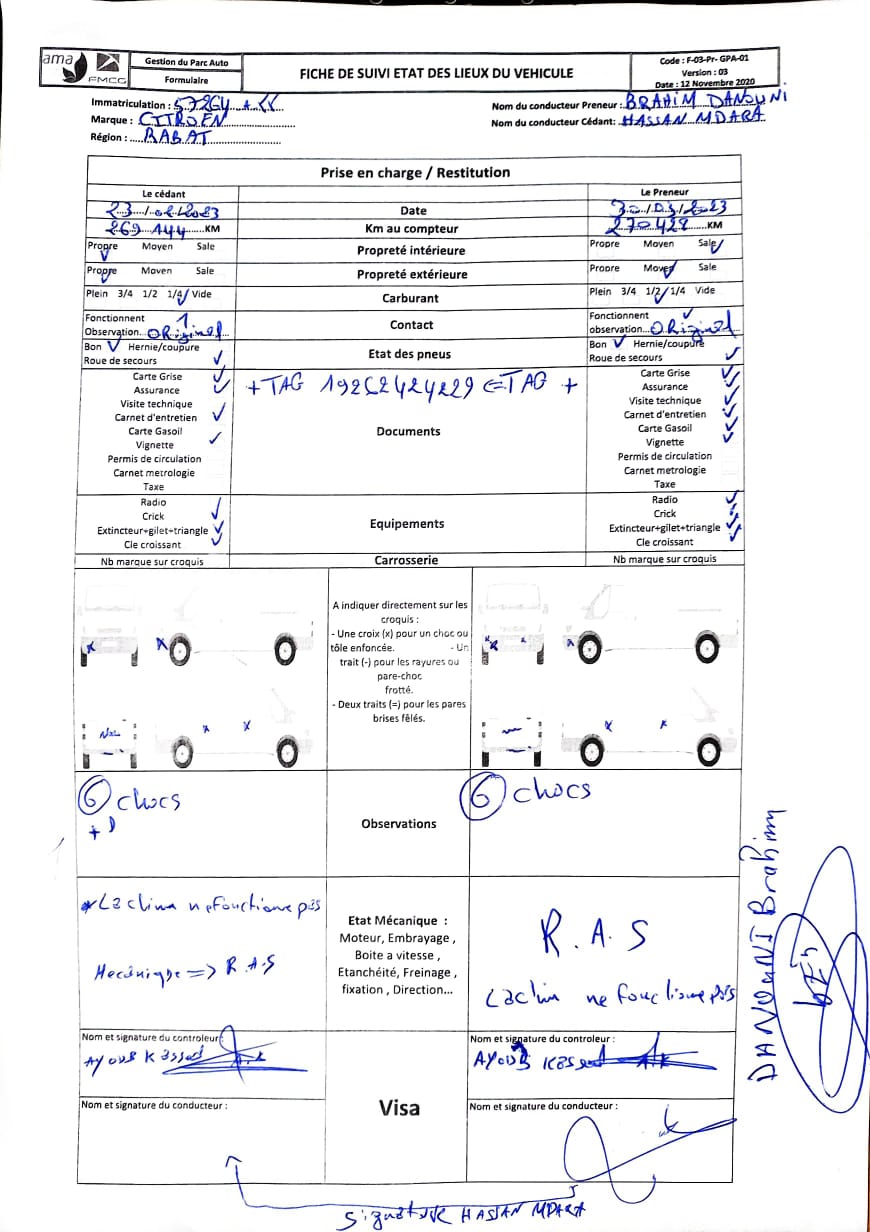 ama
FMCG
Gestion du Parc Auto
Formulaire
FICHE DE SUIVI ETAT DES LIEUX DU VEHICULE
Code : F-03-Pr- GPA-01
Version : 03
Date : 12 Novembre 2020
Immatriculation :
Marque : CITROEN
Région : RABAT
Nom du conducteur Preneur : BRAHIM DANOUNI
Nom du conducteur Cédant: HASSAN MDARA
Prise en charge / Restitution
Le cédant
Le Preneur
23/02/2023 Date 30/03/2023
269 144 KM Km au compteur 270 428 KM
Propre Moyen Sale Propreté intérieure Propre Moyen Sale
Propre Moyen Sale Propreté extérieure Propre Moyen Sale
Plein 3/4 1/2 1/4 Vide Carburant Plein 3/4 1/2 1/4 Vide
Fonctionnent 1 Contact Fonctionnent
Observation... ORiginel observation... ORiginel
Bon Hernie/coupure Etat des pneus Bon Hernie/coupure
Roue de secours Roue de secours
+TAG
TAG +
Documents
Carte Grise
Assurance
Visite technique
Carnet d'entretien
Carte Gasoil
Vignette
Permis de circulation
Carnet metrologie
Taxe
Carte Grise
Assurance
Visite technique
Carnet d'entretien
Carte Gasoil
Vignette
Permis de circulation
Carnet metrologie
Taxe
Radio
Crick
Extincteur+gilet+triangle
Cle croissant
Equipements
Radio
Crick
Extincteur+gilet+triangle
Cle croissant
Nb marque sur croquis Carrosserie Nb marque sur croquis
A indiquer directement sur les
croquis :
- Une croix (x) pour un choc ou
tôle enfoncée. - Un
trait (-) pour les rayures ou
pare-choc
frotté.
- Deux traits (=) pour les pares
brises fêlés.
6 chocs
Observations
6 chocs
La clima ne fonctione pas
Mecanique => R.A.S
Etat Mécanique :
Moteur, Embrayage ,
Boite a vitesse ,
Etanchéité, Freinage ,
fixation , Direction...
R.A.S
La clim ne fonctionne pas
Nom et signature du controleur :
AYOUB Kassed
Nom et signature du controleur :
AYOUB Kassed
Nom et signature du conducteur :
Visa
Nom et signature du conducteur :
Signature HASSAN MDARA
DANOUNI Brahim